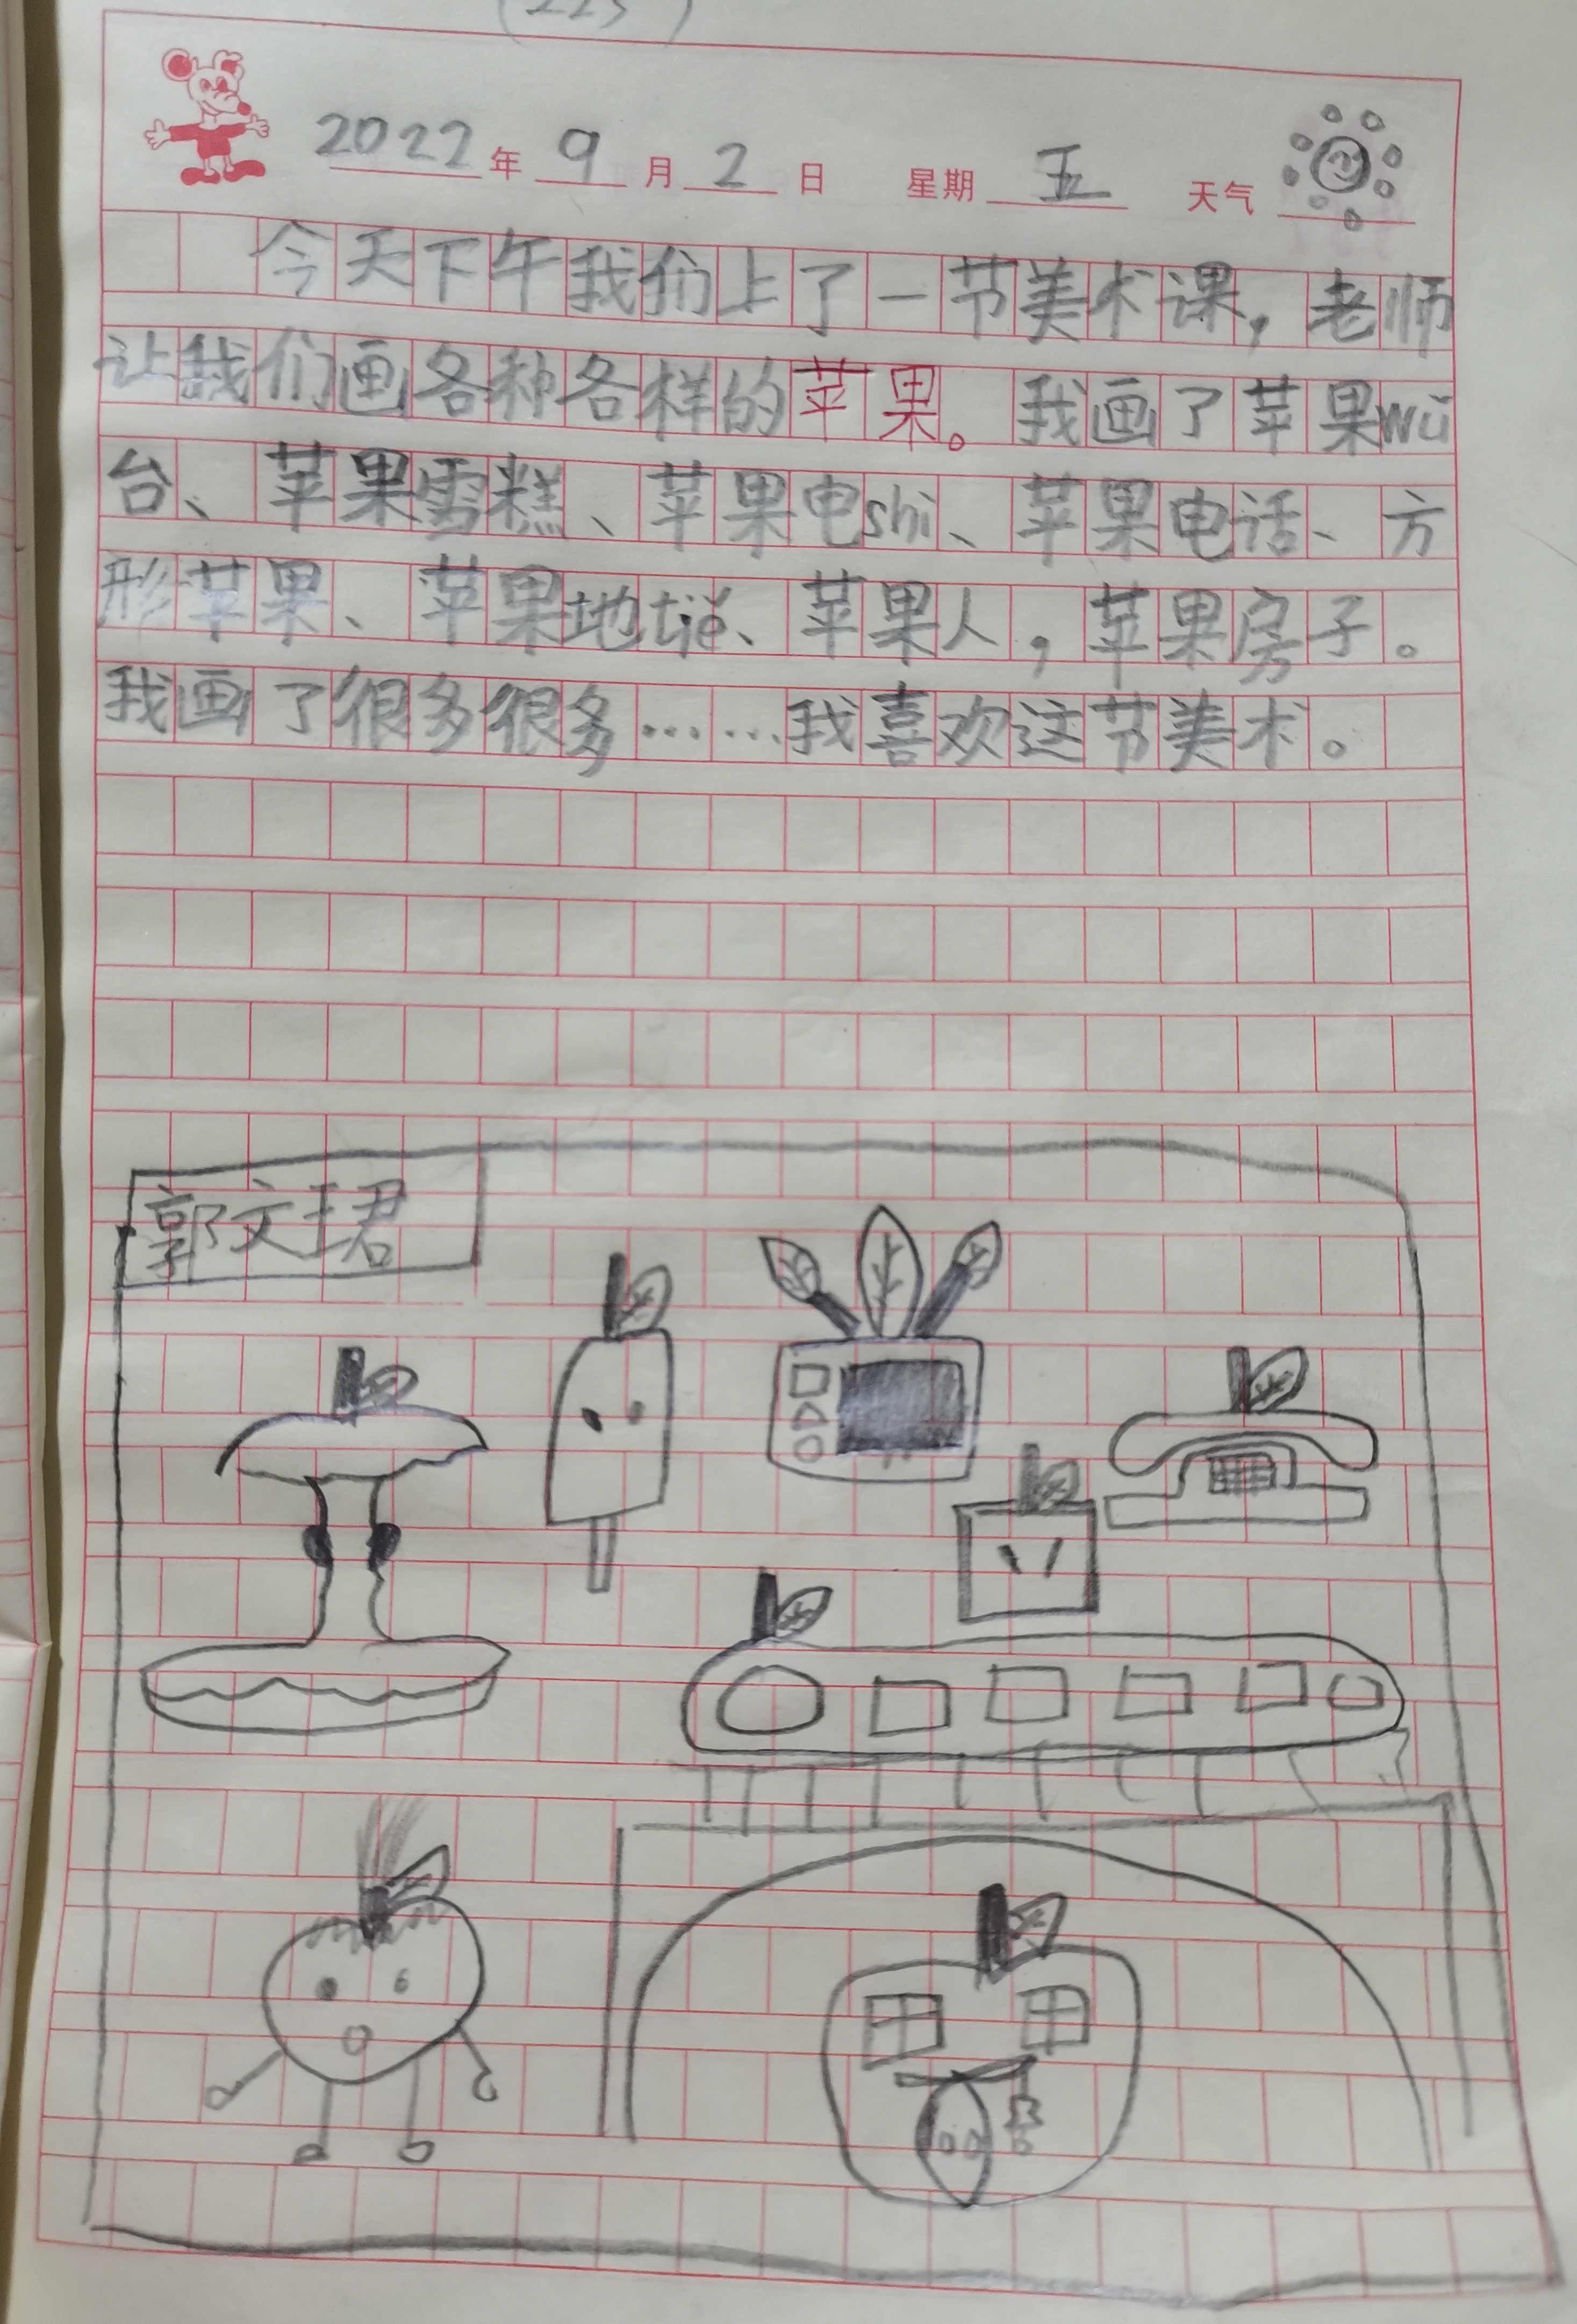 2022年9月2日 星期五 天气
今天下午我们上了一节美术课，老师
让我们画各种各样的苹果。我画了苹果wǔ
台、苹果雪糕、苹果电shì、苹果电话、方
形苹果、苹果地tiě、苹果人，苹果房子。
我画了很多很多……我喜欢这节美术。
郭文珺